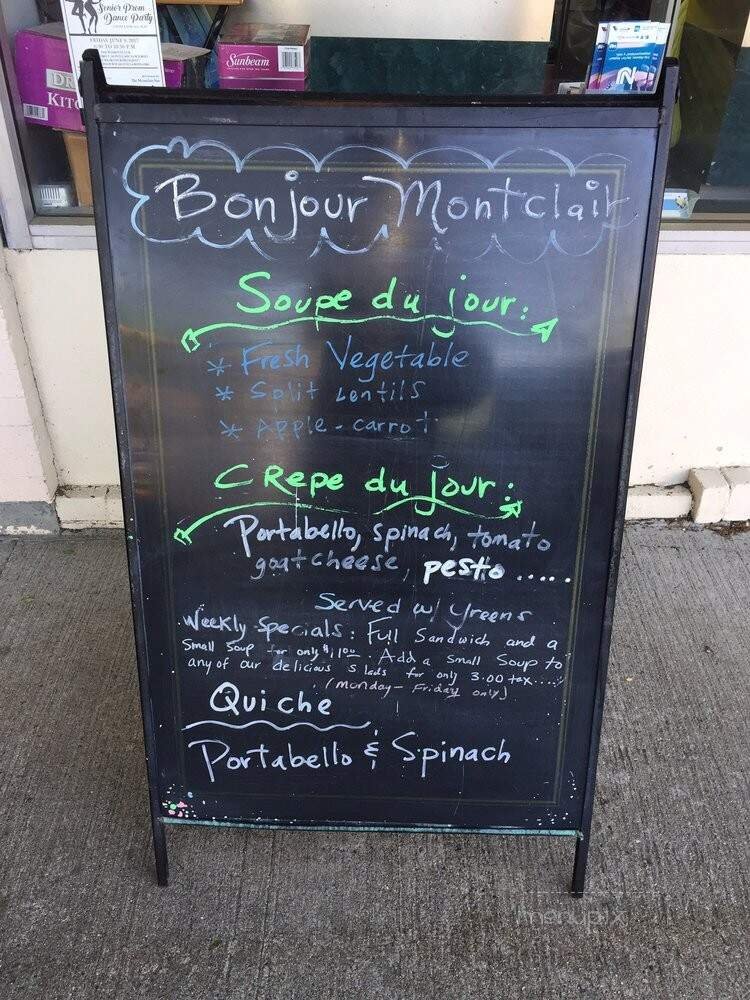 Senior Prom
Dance Party
FRIDAY JUNE 9, 2017
Sunbeam
DR
KITC
N
Bonjour Montclair
Soupe du jour:
* Fresh Vegetable
* Split Lentils
* Apple-carrot
CRepe du jour:
Portabello, spinach, tomato
goat cheese, pesto .....
Served w/ Greens
Weekly Specials: Full Sandwich and a
Small Soup for only $11.00. Add a Small Soup to
any of our delicious Slads for only 3.00 tax....
(Monday-Friday only)
Quiche
Portabello & Spinach
menupix